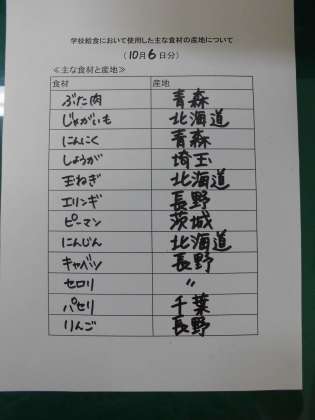 学校給食において使用した主な食材の産地について
(10月6日分)
≪主な食材と産地≫
食材 産地
ぶた肉 青森
じゃがいも 北海道
にんにく 青森
しょうが 埼玉
玉ねぎ 北海道
エリンギ 長野
ピーマン 茨城
にんじん 北海道
キャベツ 長野
セロリ 〃
パセリ 千葉
りんご 長野